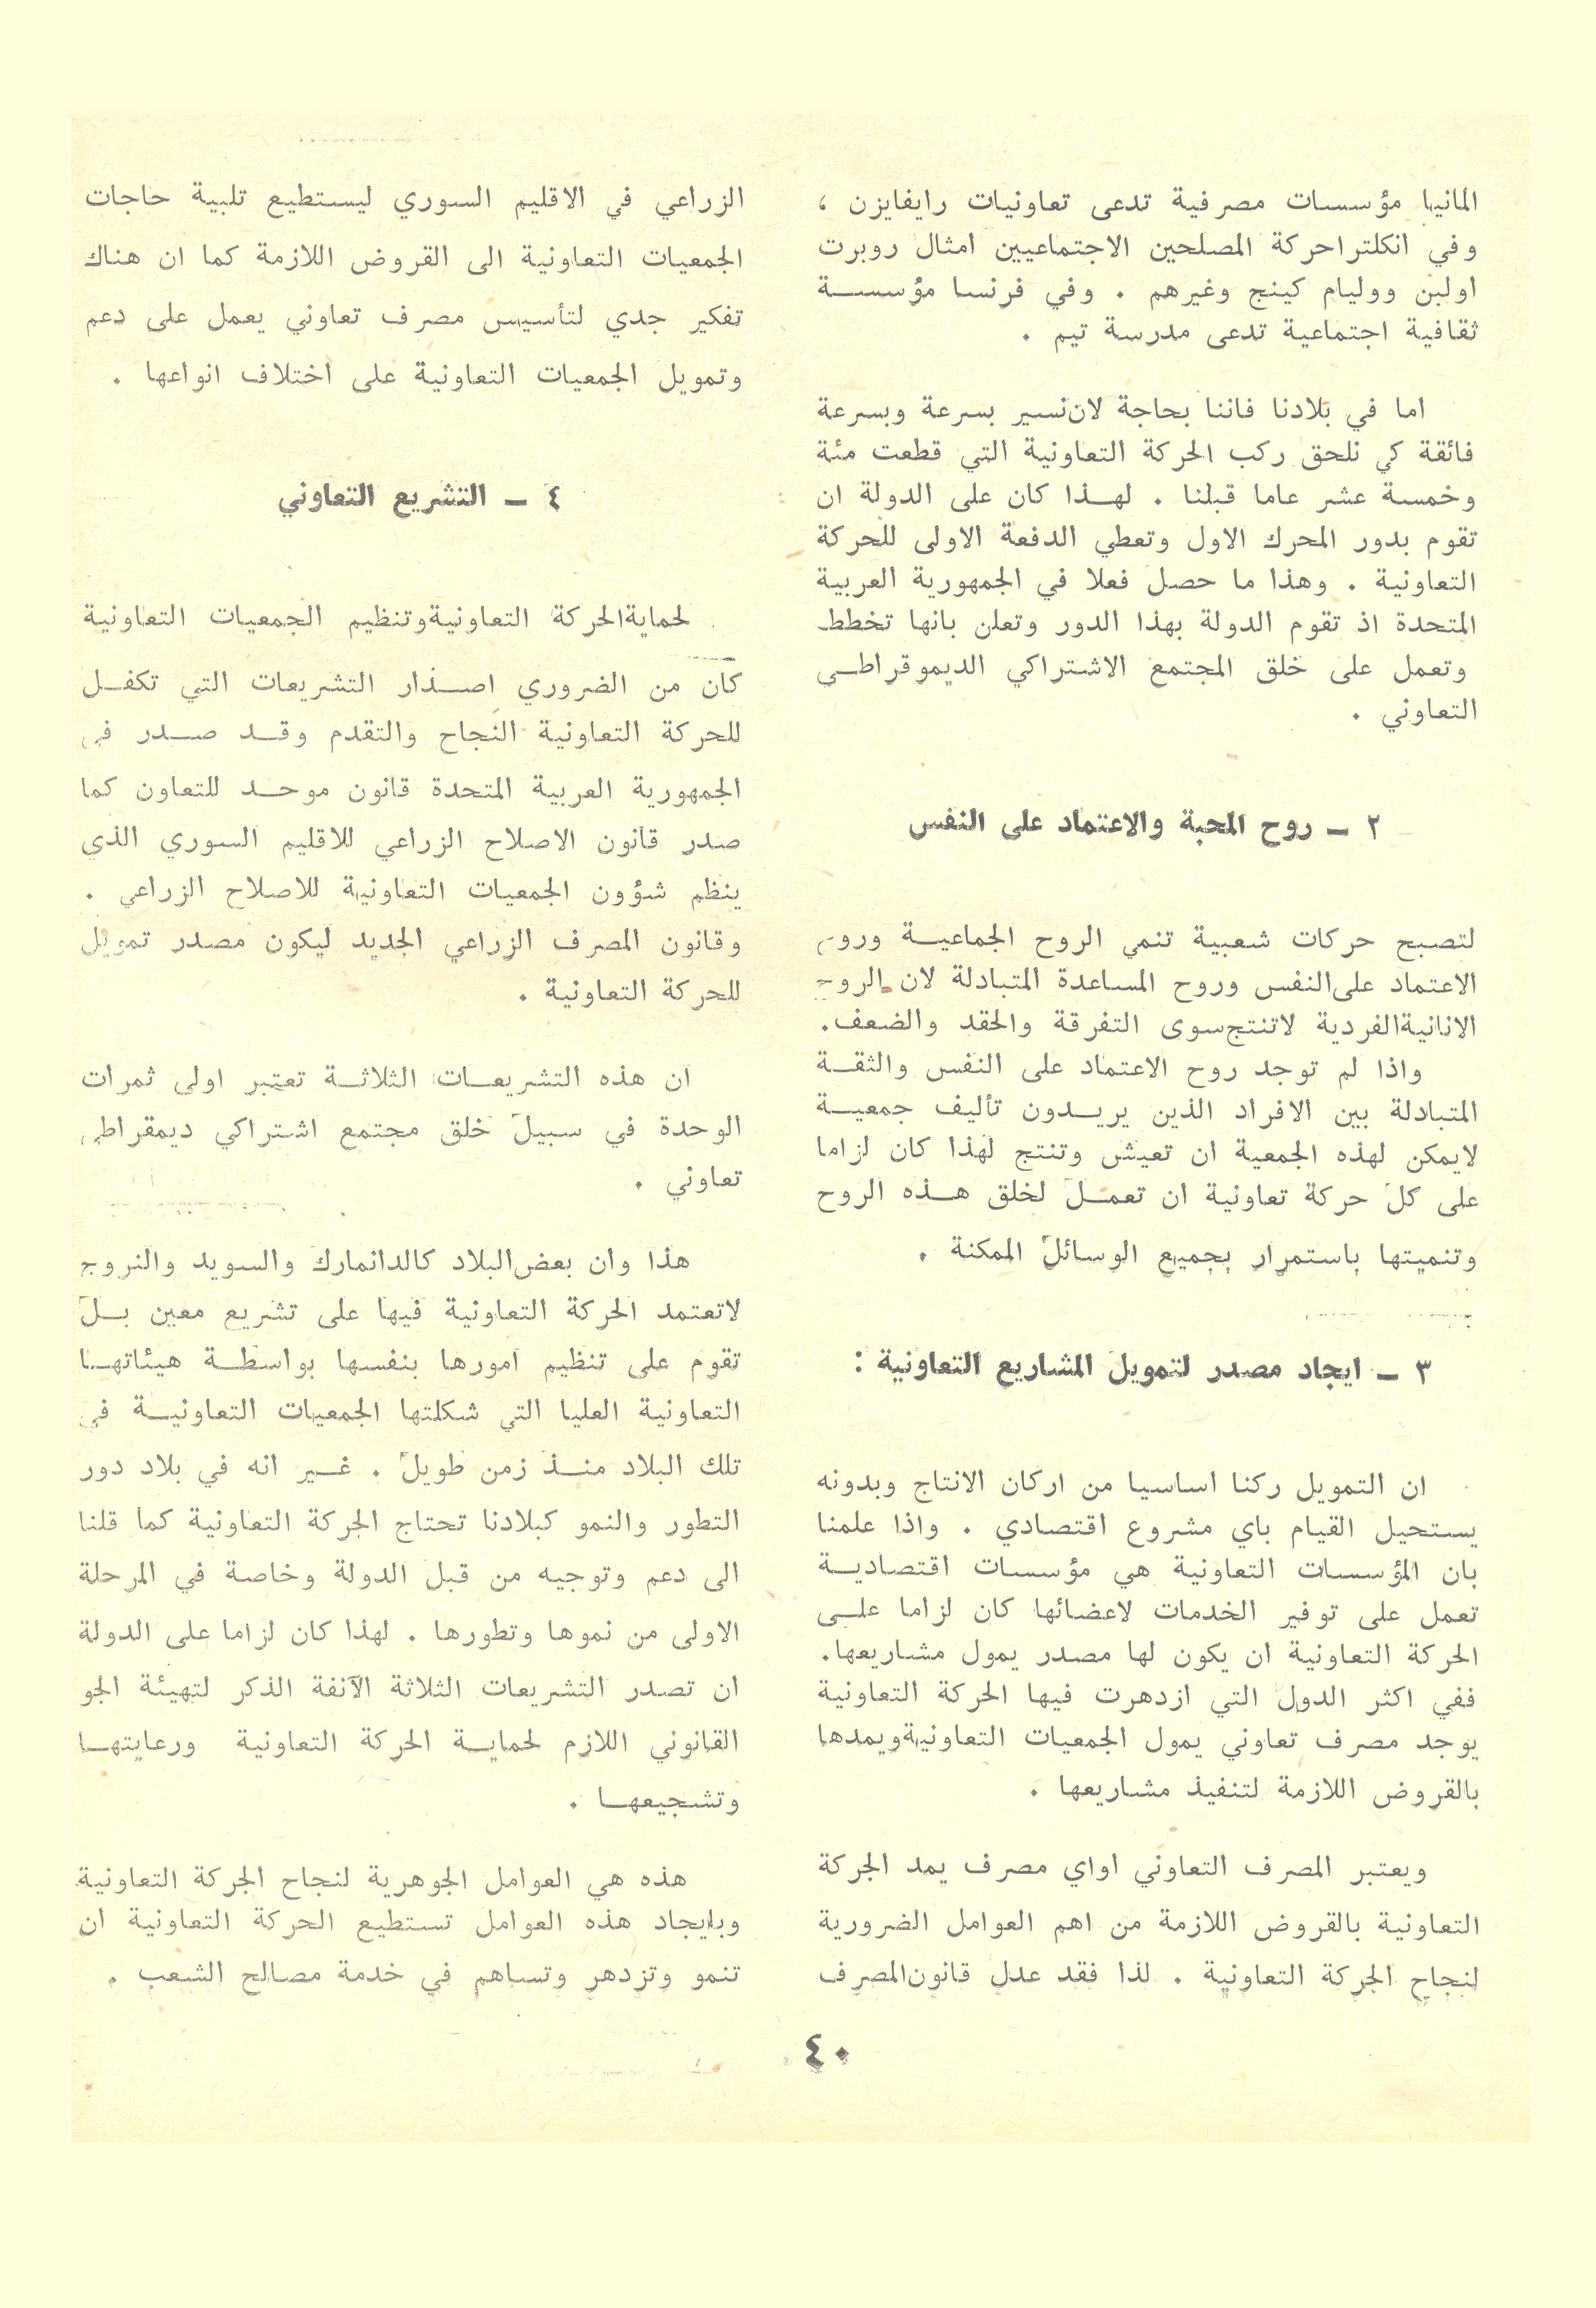 المانيا مؤسسات مصرفية تدعى تعاونيات رايفايزن ،
وفي انكلترا حركة المصلحين الاجتماعيين امثال روبرت
اولبن ووليام كينج وغيرهم . وفي فرنسا مؤسسة
ثقافية اجتماعية تدعى مدرسة تيم .
اما في بلادنا فاننا بحاجة لان نسير بسرعة وبسرعة
فائقة كي نلحق ركب الحركة التعاونية التي قطعت مئة
وخمسة عشر عاما قبلنا . لهذا كان على الدولة ان
تقوم بدور المحرك الاول وتعطي الدفعة الاولى للحركة
التعاونية . وهذا ما حصل فعلا في الجمهورية العربية
المتحدة اذ تقوم الدولة بهذا الدور وتعلن بانها تخطط
وتعمل على خلق المجتمع الاشتراكي الديموقراطي
التعاوني .
٢ - روح المحبة والاعتماد على النفس
لتصبح حركات شعبية تنمي الروح الجماعية وروح
الاعتماد على النفس وروح المساعدة المتبادلة لان الروح
الانانية الفردية لاتنتج سوى التفرقة والحقد والضعف.
واذا لم توجد روح الاعتماد على النفس والثقة
المتبادلة بين الافراد الذين يريدون تأليف جمعية
لايمكن لهذه الجمعية ان تعيش وتنتج لهذا كان لزاما
على كل حركة تعاونية ان تعمل لخلق هذه الروح
وتنميتها باستمرار بجميع الوسائل الممكنة .
٣ - ايجاد مصدر لتمويل المشاريع التعاونية :
ان التمويل ركنا اساسيا من اركان الانتاج وبدونه
يستحيل القيام باي مشروع اقتصادي . واذا علمنا
بان المؤسسات التعاونية هي مؤسسات اقتصادية
تعمل على توفير الخدمات لاعضائها كان لزاما على
الحركة التعاونية ان يكون لها مصدر يمول مشاريعها.
ففي اكثر الدول التي ازدهرت فيها الحركة التعاونية
يوجد مصرف تعاوني يمول الجمعيات التعاونية ويمدها
بالقروض اللازمة لتنفيذ مشاريعها .
ويعتبر المصرف التعاوني اواي مصرف يمد الحركة
التعاونية بالقروض اللازمة من اهم العوامل الضرورية
لنجاح الحركة التعاونية . لذا فقد عدل قانون المصرف
الزراعي في الاقليم السوري ليستطيع تلبية حاجات
الجمعيات التعاونية الى القروض اللازمة كما ان هناك
تفكير جدي لتأسيس مصرف تعاوني يعمل على دعم
وتمويل الجمعيات التعاونية على اختلاف انواعها .
٤ - التشريع التعاوني
لحماية الحركة التعاونية وتنظيم الجمعيات التعاونية
كان من الضروري اصدار التشريعات التي تكفل
للحركة التعاونية النجاح والتقدم وقد صدر في
الجمهورية العربية المتحدة قانون موحد للتعاون كما
صدر قانون الاصلاح الزراعي للاقليم السوري الذي
ينظم شؤون الجمعيات التعاونية للاصلاح الزراعي .
وقانون المصرف الزراعي الجديد ليكون مصدر تمويل
للحركة التعاونية .
ان هذه التشريعات الثلاثة تعتبر اولى ثمرات
الوحدة في سبيل خلق مجتمع اشتراكي ديمقراطي
تعاوني .
هذا وان بعض البلاد كالدانمارك والسويد والنروج
لاتعتمد الحركة التعاونية فيها على تشريع معين بل
تقوم على تنظيم امورها بنفسها بواسطة هيئاتها
التعاونية العليا التي شكلتها الجمعيات التعاونية في
تلك البلاد منذ زمن طويل . غير انه في بلاد دور
التطور والنمو كبلادنا تحتاج الحركة التعاونية كما قلنا
الى دعم وتوجيه من قبل الدولة وخاصة في المرحلة
الاولى من نموها وتطورها . لهذا كان لزاما على الدولة
ان تصدر التشريعات الثلاثة الآنفة الذكر لتهيئة الجو
القانوني اللازم لحماية الحركة التعاونية ورعايتها
وتشجيعها .
هذه هي العوامل الجوهرية لنجاح الحركة التعاونية
وبايجاد هذه العوامل تستطيع الحركة التعاونية ان
تنمو وتزدهر وتساهم في خدمة مصالح الشعب .
٤٠